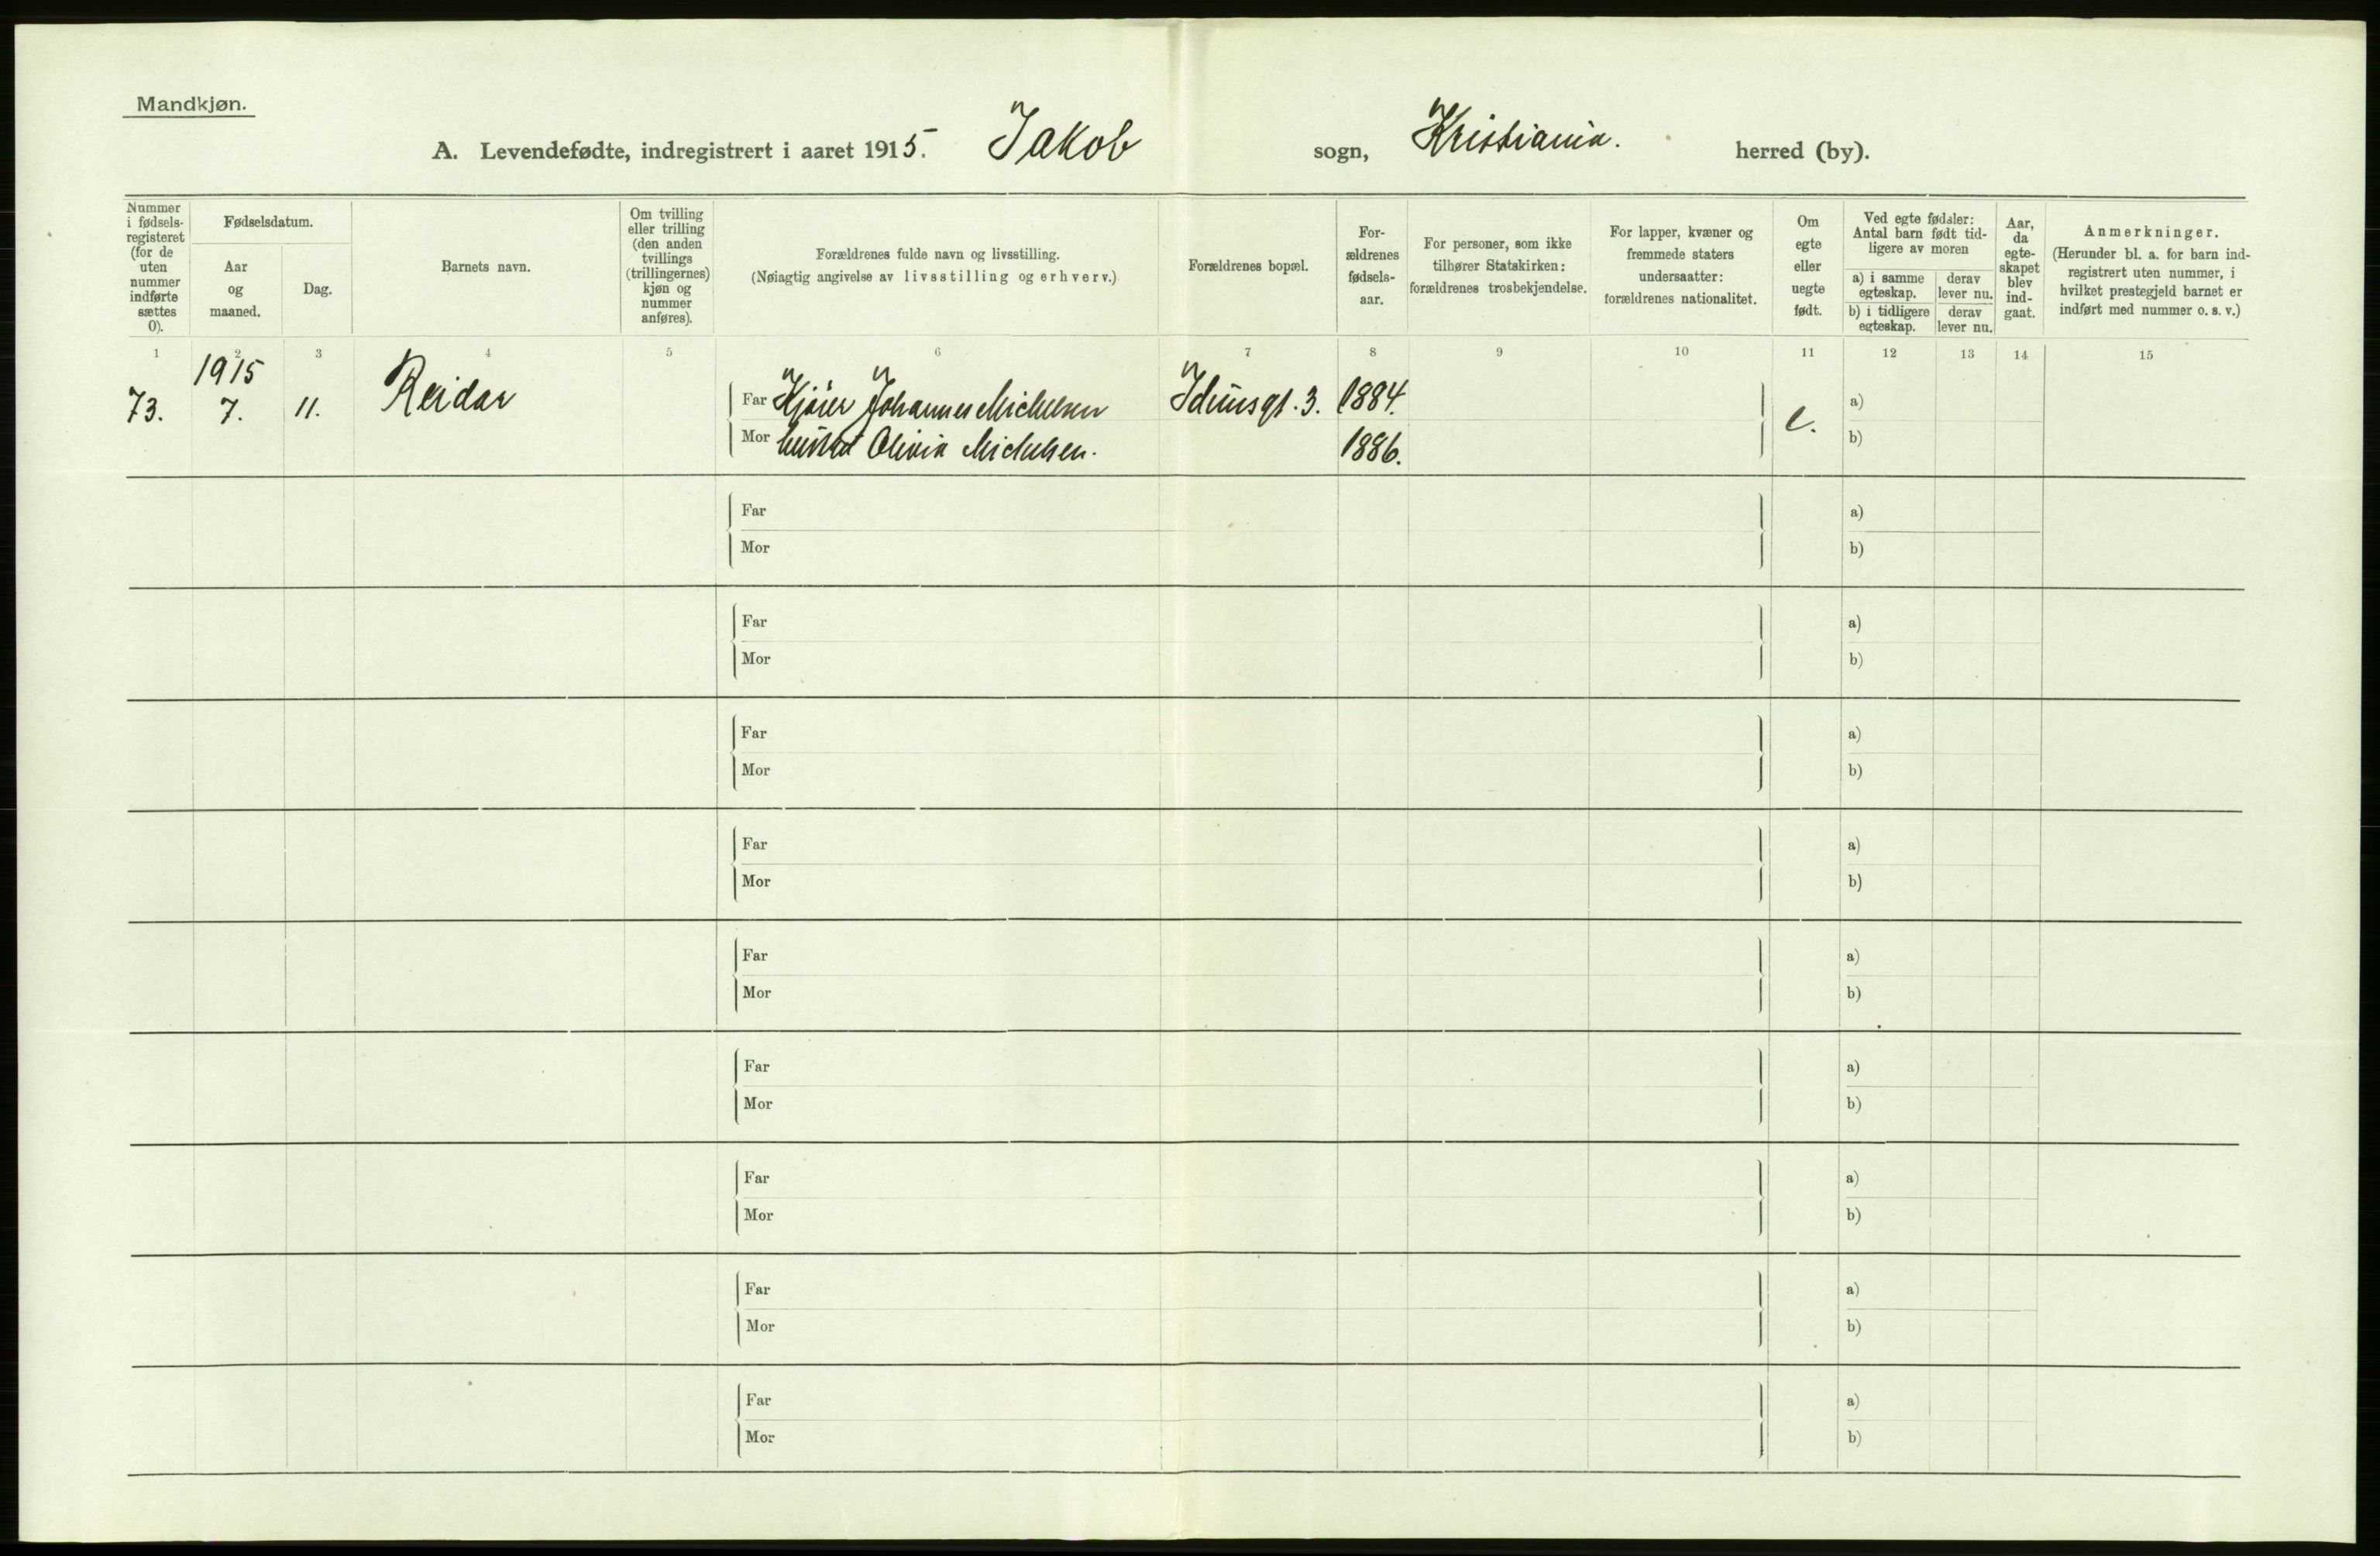 Mandkjøn.
A. Levendefødte, indregistrert i aaret 1915. Jakob sogn, Kristiania. herred (by).
Nummer i fødsels-registeret (for de uten nummer indførte sættes 0).
Fødselsdatum.
Aar og maaned.
Dag.
Barnets navn.
Om tvilling eller trilling (den anden tvillings (trillingernes) kjøn og nummer anføres).
Forældrenes fulde navn og livsstilling.
(Nøiagtig angivelse av livsstilling og erhverv.)
Forældrenes bopæl.
For-ældrenes fødsels-aar.
For personer, som ikke tilhører Statskirken: forældrenes trosbekjendelse.
For lapper, kvæner og fremmede staters undersaatter: forældrenes nationalitet.
Om egte eller uegte født.
Ved egte fødsler: Antal barn født tid-ligere av moren
a) i samme egteskap.
derav lever nu.
b) i tidligere egteskap.
derav lever nu.
Aar, da egte-skapet blev ind-gaat.
Anmerkninger.
(Herunder bl. a. for barn ind-registrert uten nummer, i hvilket prestegjeld barnet er indført med nummer o. s. v.)
1 2 3 4 5 6 7 8 9 10 11 12 13 14 15
1915
73. 7. 11. Reidar Far Kjører Johannes Michelsen Idunsgt. 3. 1884. e. a)
Mor hustru Olivia Michelsen. 1886. b)
Far a)
Mor b)
Far a)
Mor b)
Far a)
Mor b)
Far a)
Mor b)
Far a)
Mor b)
Far a)
Mor b)
Far a)
Mor b)
Far a)
Mor b)
Far a)
Mor b)